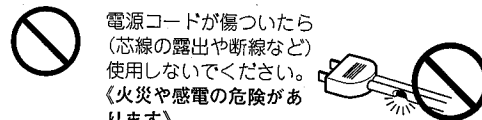 電源コードが傷ついたら
(芯線の露出や断線など)
使用しないでください。
《火災や感電の危険があ
ります》